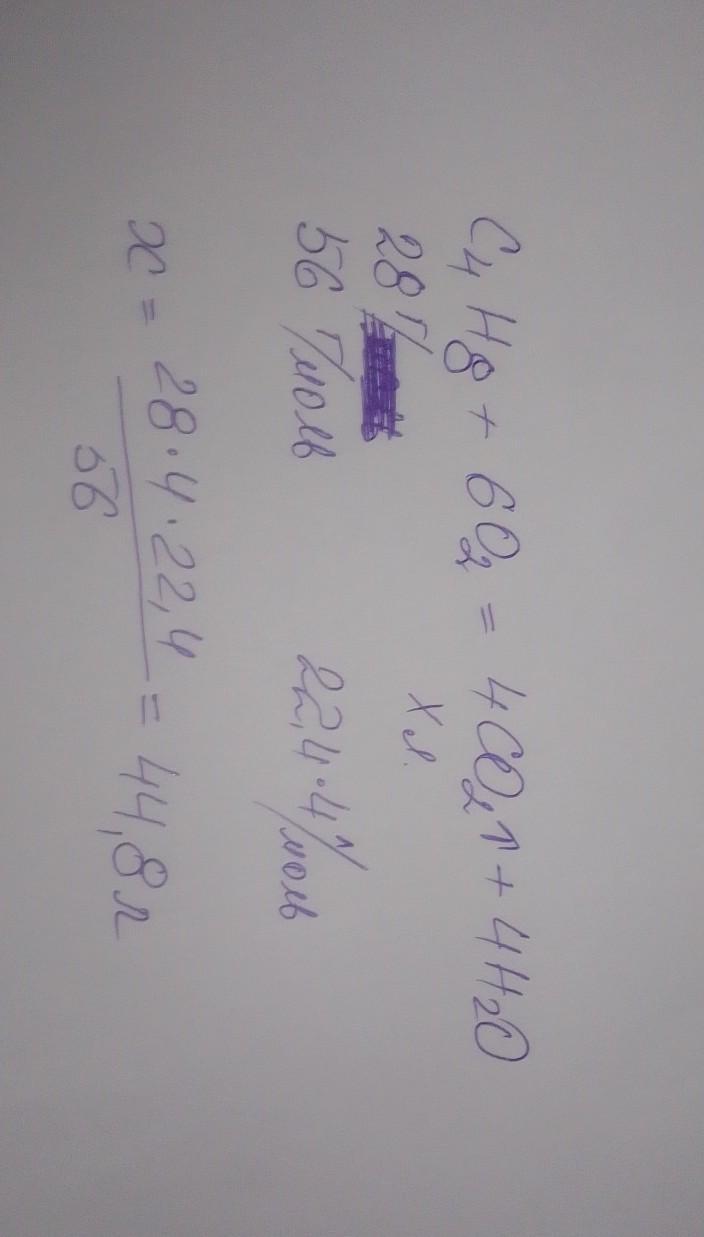 C₄H₈ + 6O₂ = 4CO₂↑ + 4H₂O
28 г/ х л.
56 г/моль 22,4·4 л/моль
x = 28·4·22,4 / 56 = 44,8 л